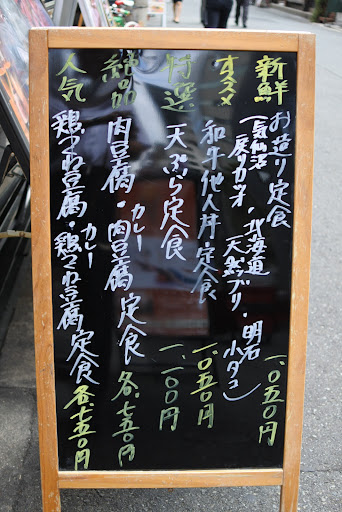 新鮮 お造り定食 一、〇五〇円
(気仙沼 戻りガツオ・北海道 天然ブリ・明石 小ダコ)
オススメ 和牛他人丼定食 一、〇五〇円
特選 天ぷら定食 一、一〇〇円
絶品 肉豆腐・肉豆腐カレー定食 各七五〇円
人気 鶏つくね豆腐・鶏つくね豆腐カレー定食 各七五〇円